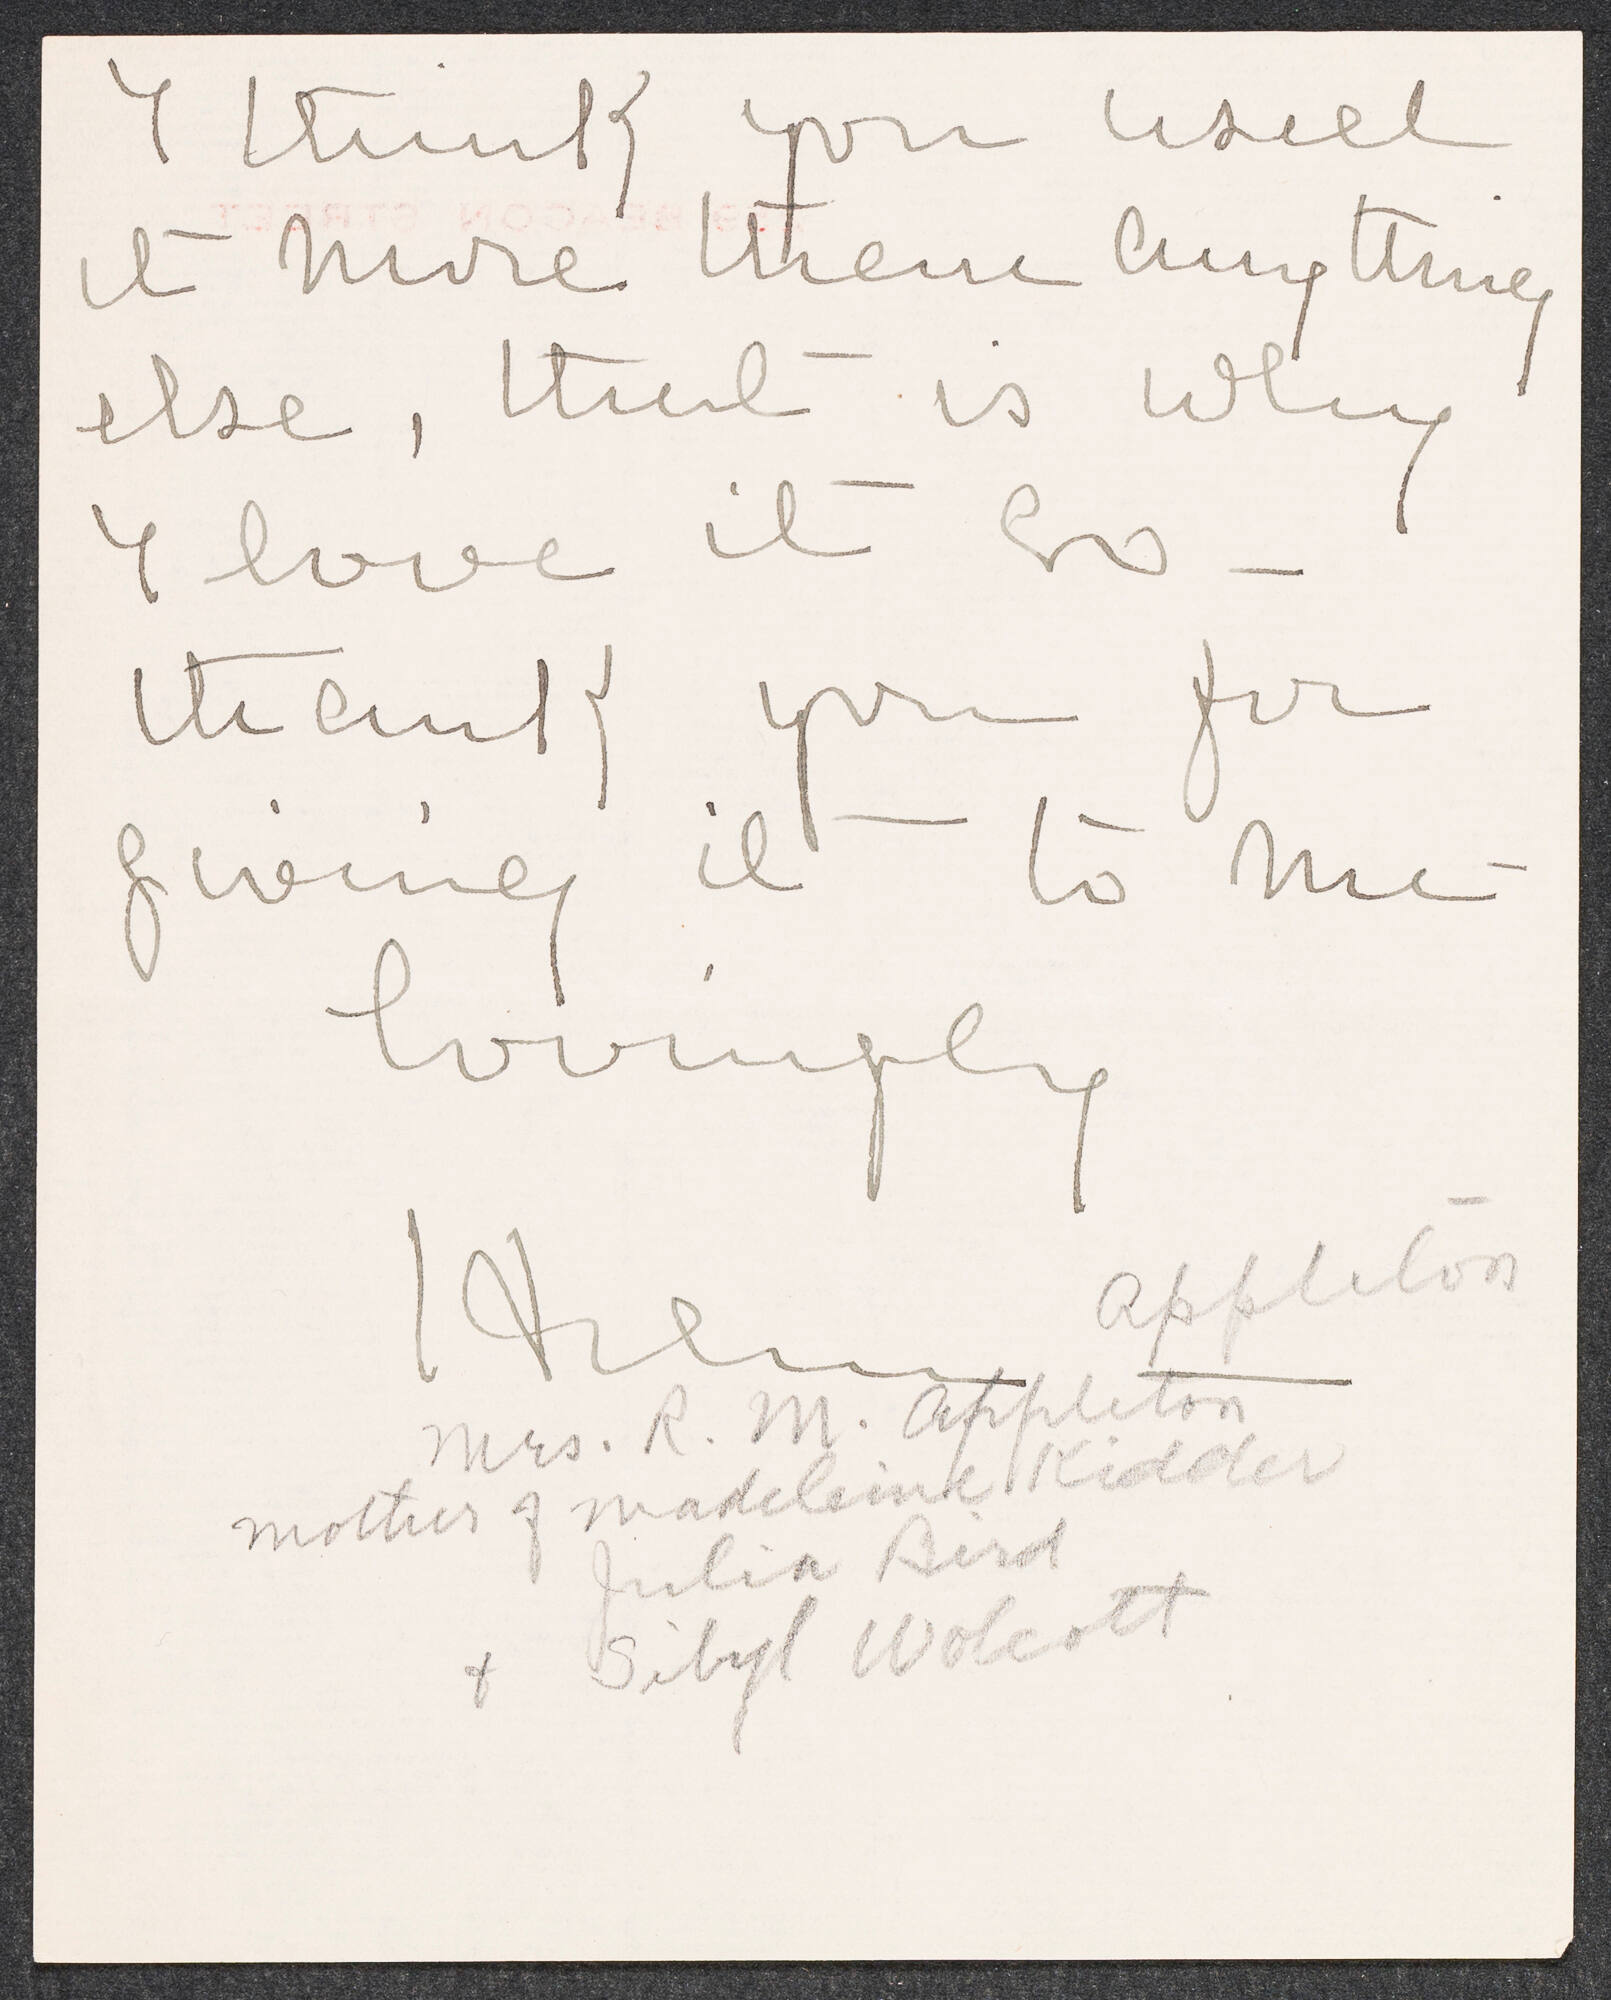 I think you used
it more than anything
else, that is why
I love it so –
thank you for
giving it to me –
Lovingly
Helen
Appleton
Mrs. R. M. Appleton
mother of Madeleine Kidder
Julia Bird
+ Sibyl Wolcott